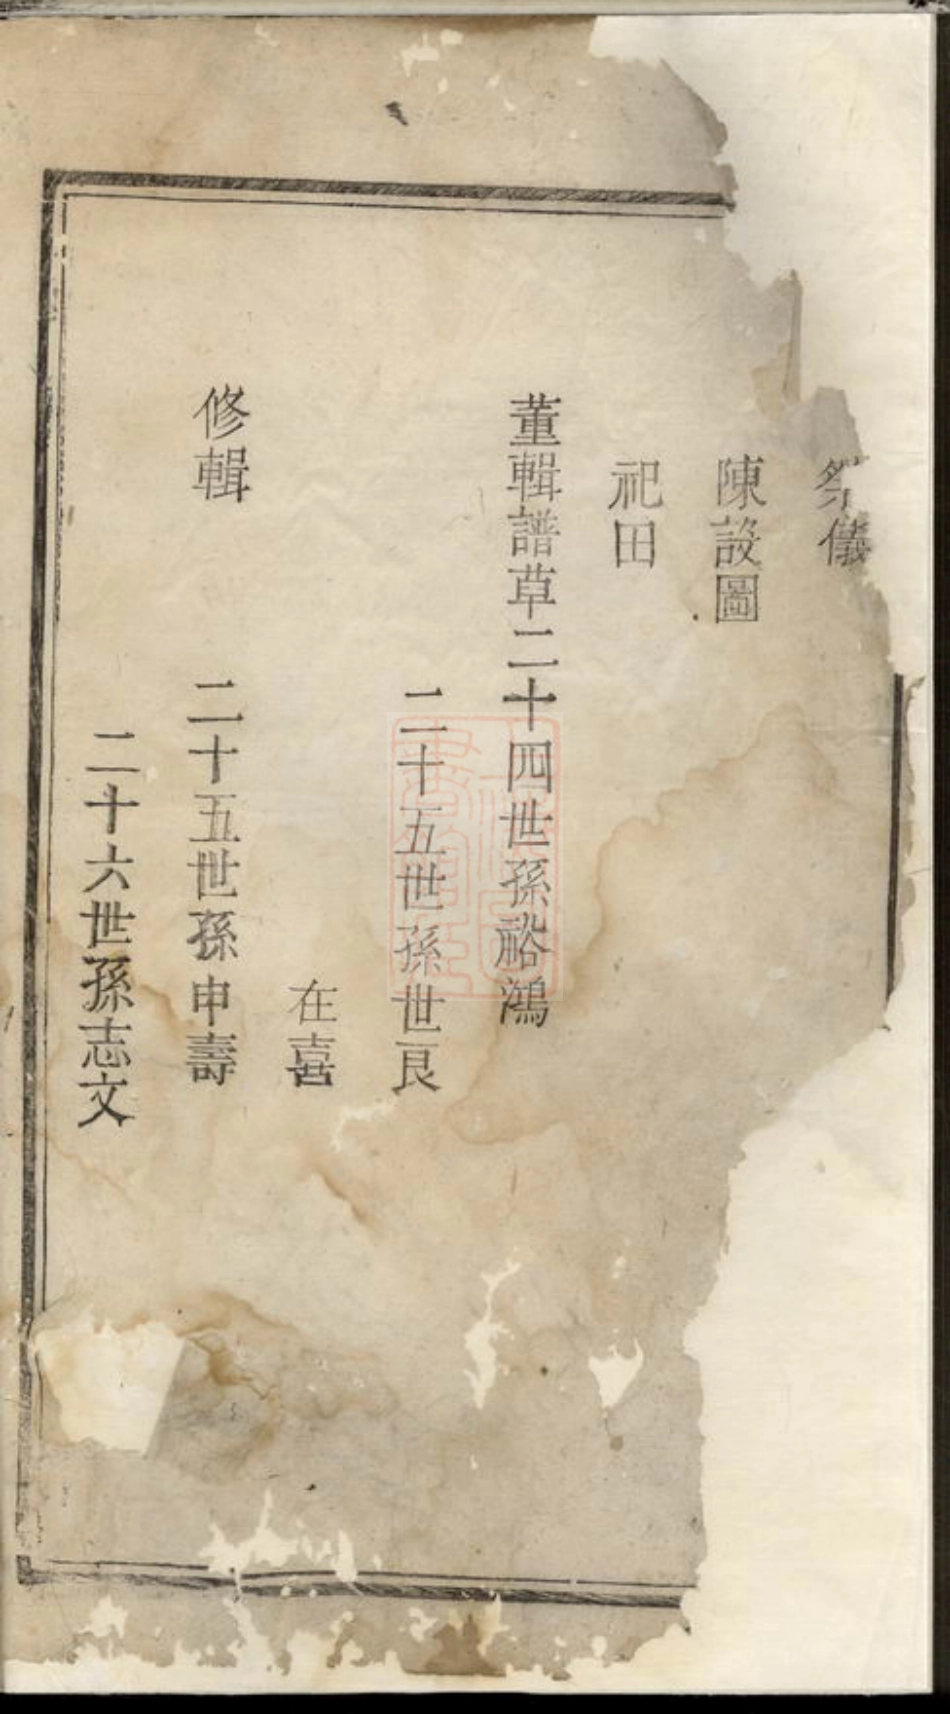 祭儀
陳設圖
祀田
董輯譜草二十四世孫裕鴻
二十五世孫世良
在喜
修輯 二十五世孫申壽
二十六世孫志文